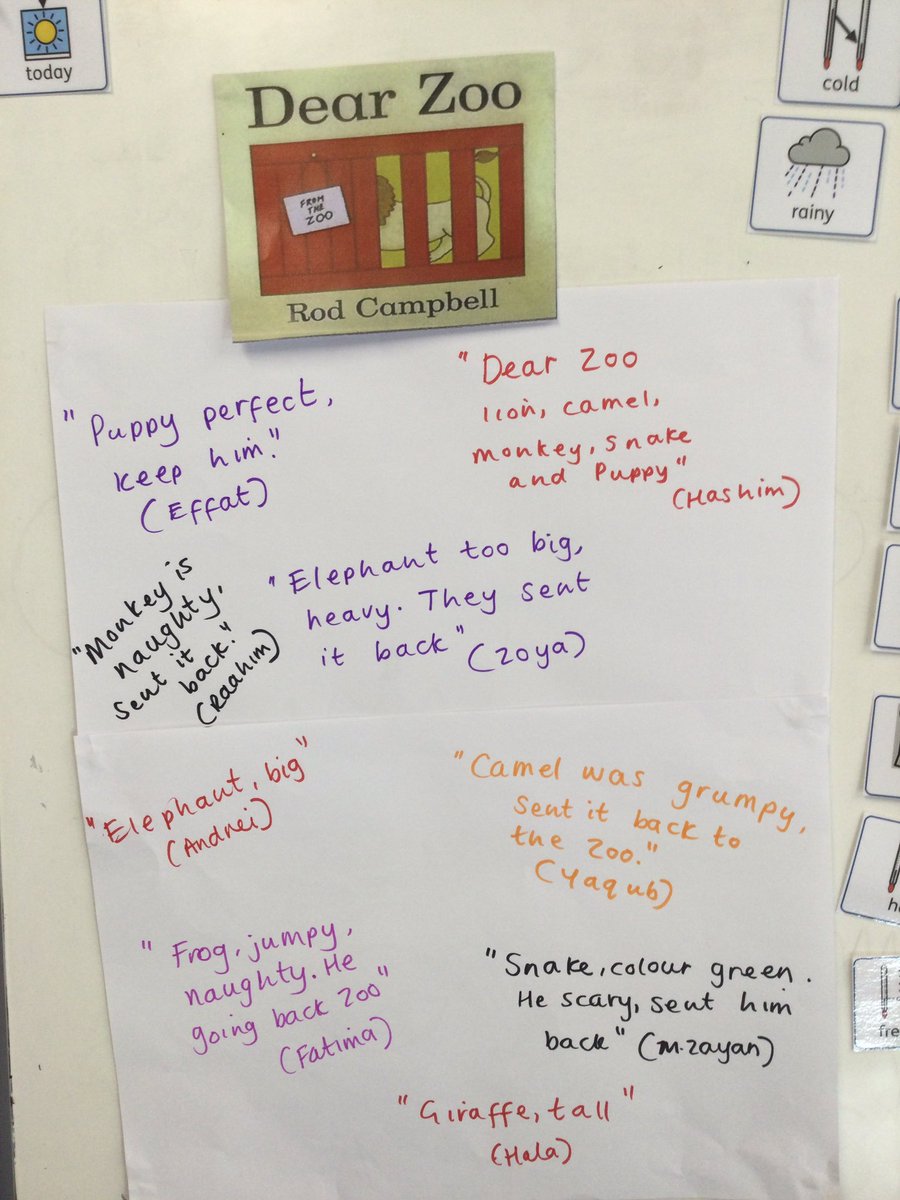 today
cold
rainy
Dear Zoo
FROM
THE
ZOO
Rod Campbell
"Puppy perfect,
keep him."
(Effat)
"Dear Zoo
lion, camel,
monkey, snake
and Puppy"
(Hashim)
"Monkey is
naughty,
sent it
back."
(Raahim)
"Elephant too big,
heavy. They sent
it back" (Zoya)
"Elephant, big"
(Andrei)
"Camel was grumpy,
sent it back to
the Zoo."
(Yaqub)
"Frog, jumpy,
naughty. He
going back Zoo"
(Fatima)
"Snake, colour green.
He scary, sent him
back" (M.Zayan)
"Giraffe, tall"
(Hala)